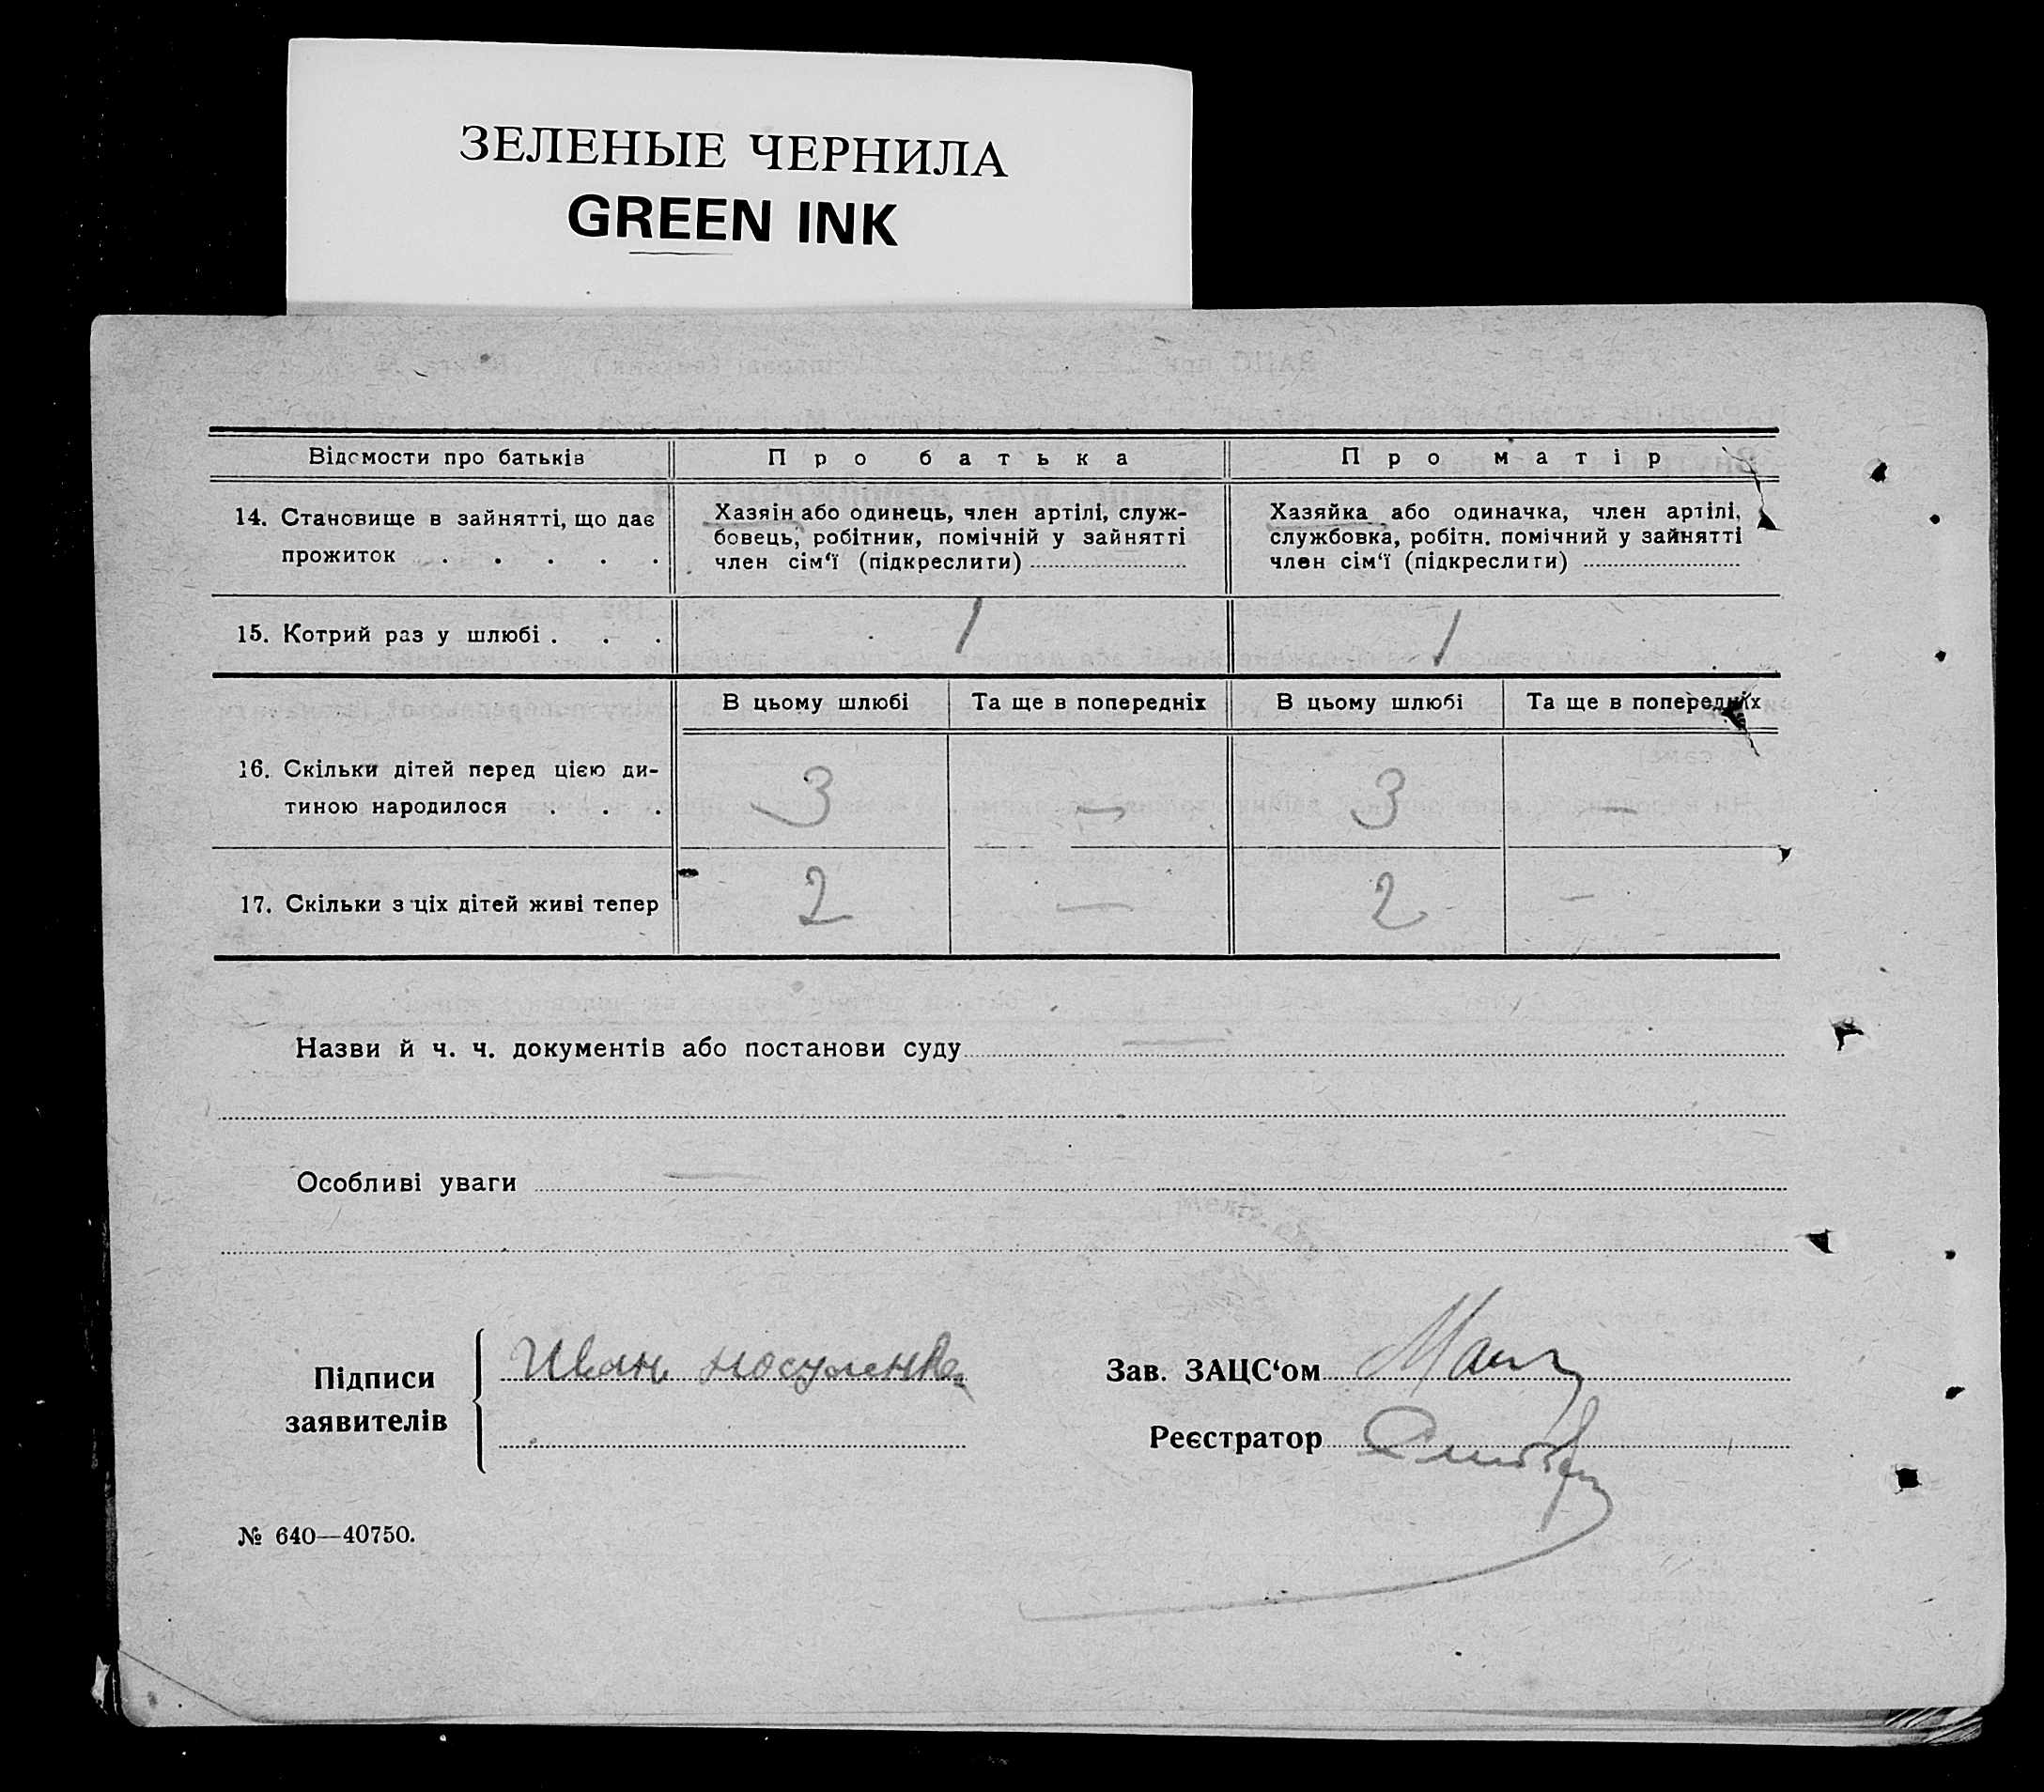 ЗЕЛЕНЫЕ ЧЕРНИЛА
GREEN INK
Відомости про батьків
Про батька
Про матір
14. Становище в зайнятті, що дає
прожиток . . . . .
Хазяін або одинець, член артілі, служ-
бовець, робітник, помічній у зайнятті
член сім‘ї (підкреслити)
Хазяйка або одиначка, член артілі,
службовка, робітн. помічний у зайнятті
член сім‘ї (підкреслити)
15. Котрий раз у шлюбі . . .
1
1
В цьому шлюбі
Та ще в попередніх
В цьому шлюбі
Та ще в попередніх
16. Скільки дітей перед цією ди-
тиною народилося . . .
3
—
3
—
17. Скільки з ціх дітей живі тепер
2
—
2
—
Назви й ч. ч. документів або постанови суду —
Особливі уваги —
Підписи
заявителів
Иван Носуленко
Зав. ЗАЦС‘ом
Реєстратор
№ 640—40750.